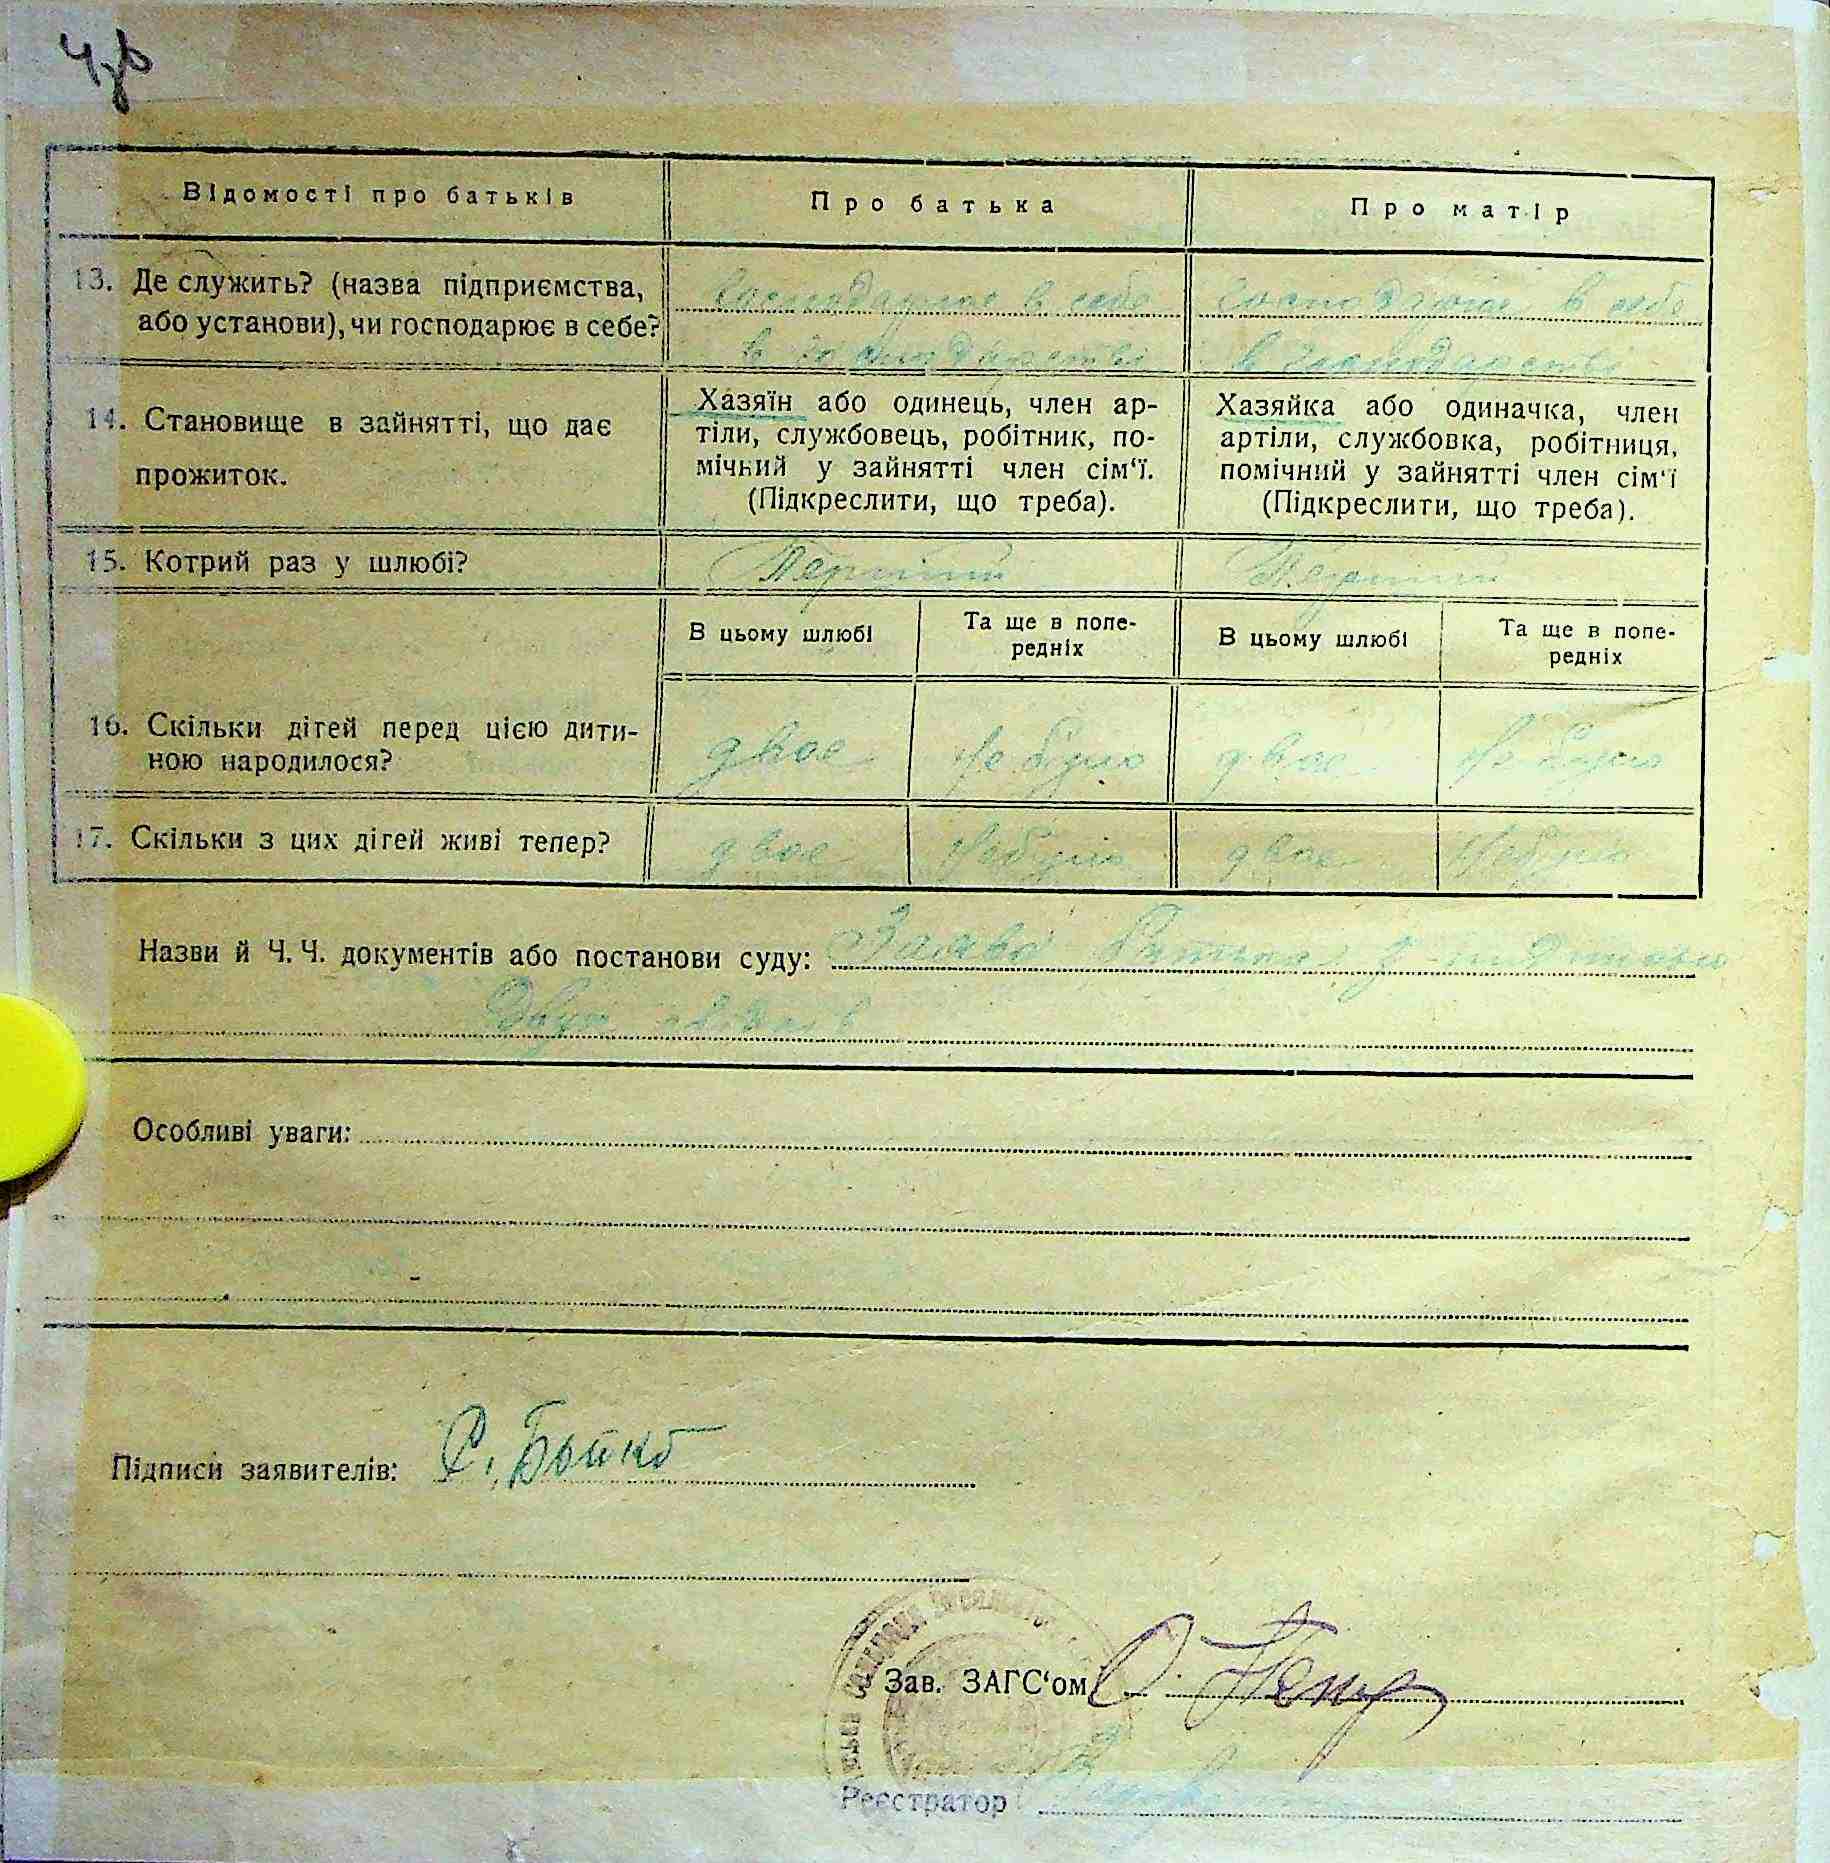 Відомості про батьків
Про батька
Про матір
13. Де служить? (назва підприємства,
або установи), чи господарює в себе?
Господарює в себе
в господарстві
Господарює в себе
в господарстві
14. Становище в зайнятті, що дає
прожиток.
Хазяїн або одинець, член ар-
тіли, службовець, робітник, по-
мічний у зайнятті член сім‘ї.
(Підкреслити, що треба).
Хазяйка або одиначка, член
артіли, службовка, робітниця,
помічний у зайнятті член сім‘ї
(Підкреслити, що треба).
15. Котрий раз у шлюбі?
Перший
Перший
В цьому шлюбі
Та ще в попе-
редніх
В цьому шлюбі
Та ще в попе-
редніх
16. Скільки дітей перед цією дити-
ною народилося?
двоє
Не було
двоє
Не було
17. Скільки з цих дітей живі тепер?
двоє
Не було
двоє
Не було
Назви й Ч. Ч. документів або постанови суду: Заява батька з
двох свідків
Особливі уваги:
Підписи заявителів: С. Бойко
Зав. ЗАГС‘ом
Реєстратор